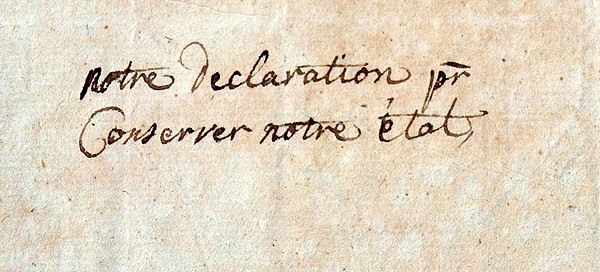 notre declaration pr
Conserver notre état,